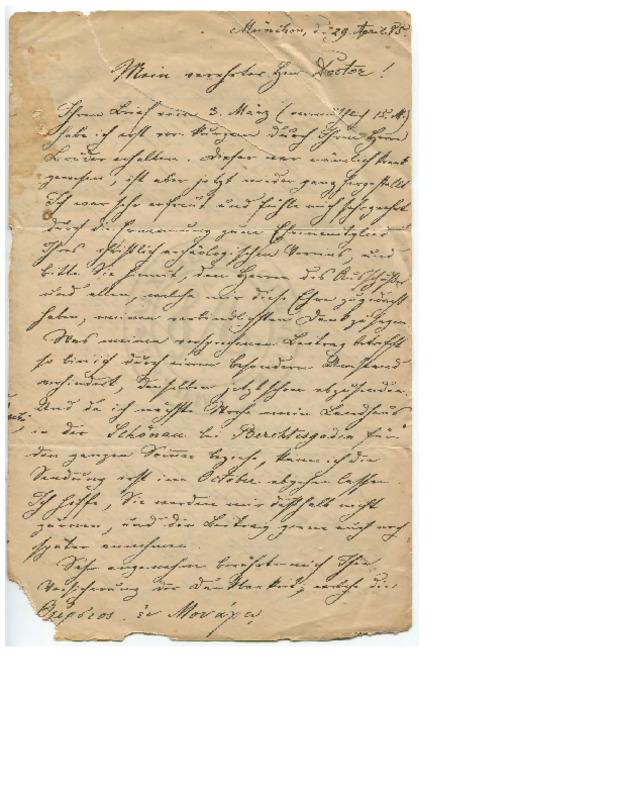 München, d. 29 April 85.
Mein verehrter Herr Doctor!
Ihren Brief vom 3. März (vermuthlich 15. M.)
habe ich erst vor kurzem durch Ihren Herrn
Bruder erhalten. Dieser war nämlich krank
gewesen, ist aber jetzt wieder ganz hergestellt
Ich war sehr erfreut und fühle mich sehr geehrt
durch die Ernennung zum Ehrenmitglied
Ihres christlich archäologischen Vereins, und
bitte Sie hiemit, den Herren des Ausschußes
und allen, welche mir diese Ehre zugedacht
haben, meinen verbindlichsten Dank zu sagen.
Was meinen versprochenen Beitrag betrifft
so bin ich durch einen besondern Umstand
verhindert, denselben jetzt schon abzusenden.
Und da ich nächste Woche mein Landhaus
in der Schönau bei Berchtesgaden für
den ganzen Sommer beziehe, kann ich die
Sendung erst im October abgehen lassen.
Ich hoffe, Sie werden mir deßhalb nicht
zürnen, und den Beitrag gerne auch noch
später annehmen.
Sehr angenehm berührte mich Ihre
Versicherung der Dankbarkeit, welche die
Θείρσιος ἐν Μονάχῳ